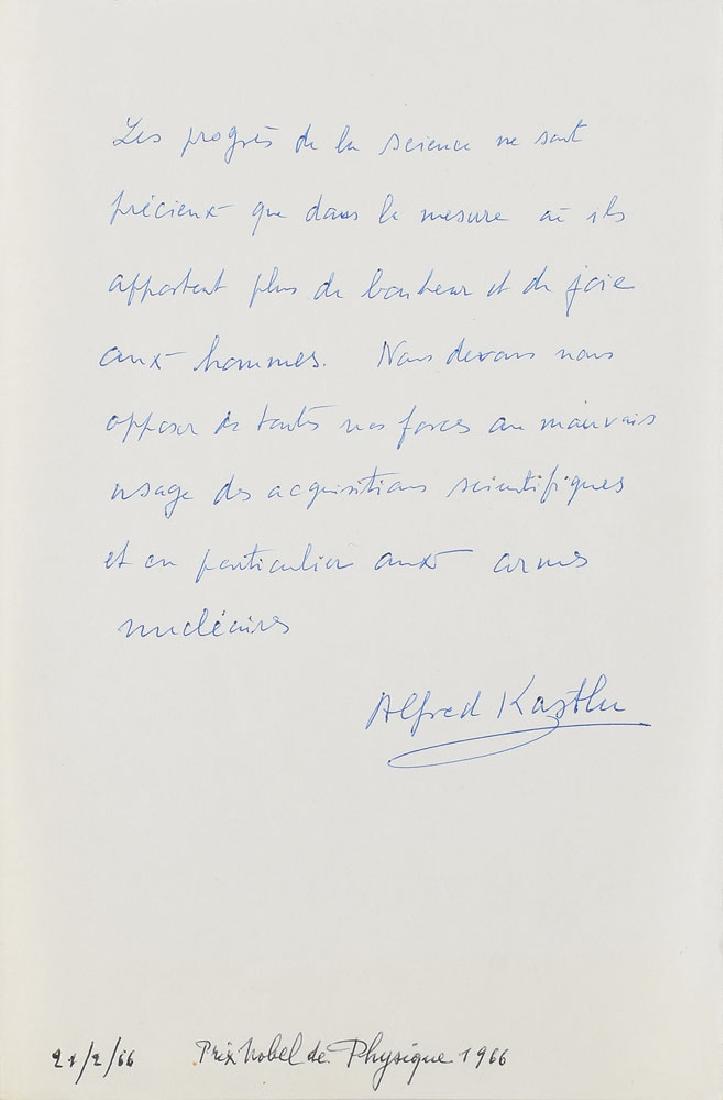 Les progrès de la science ne sont
précieux que dans la mesure où ils
apportent plus de bonheur et de joie
aux hommes. Nous devons nous
opposer de toutes nos forces au mauvais
usage des acquisitions scientifiques
et en particulier aux armes
nucléaires
Alfred Kastler
21/2/66 Prix Nobel de Physique 1966